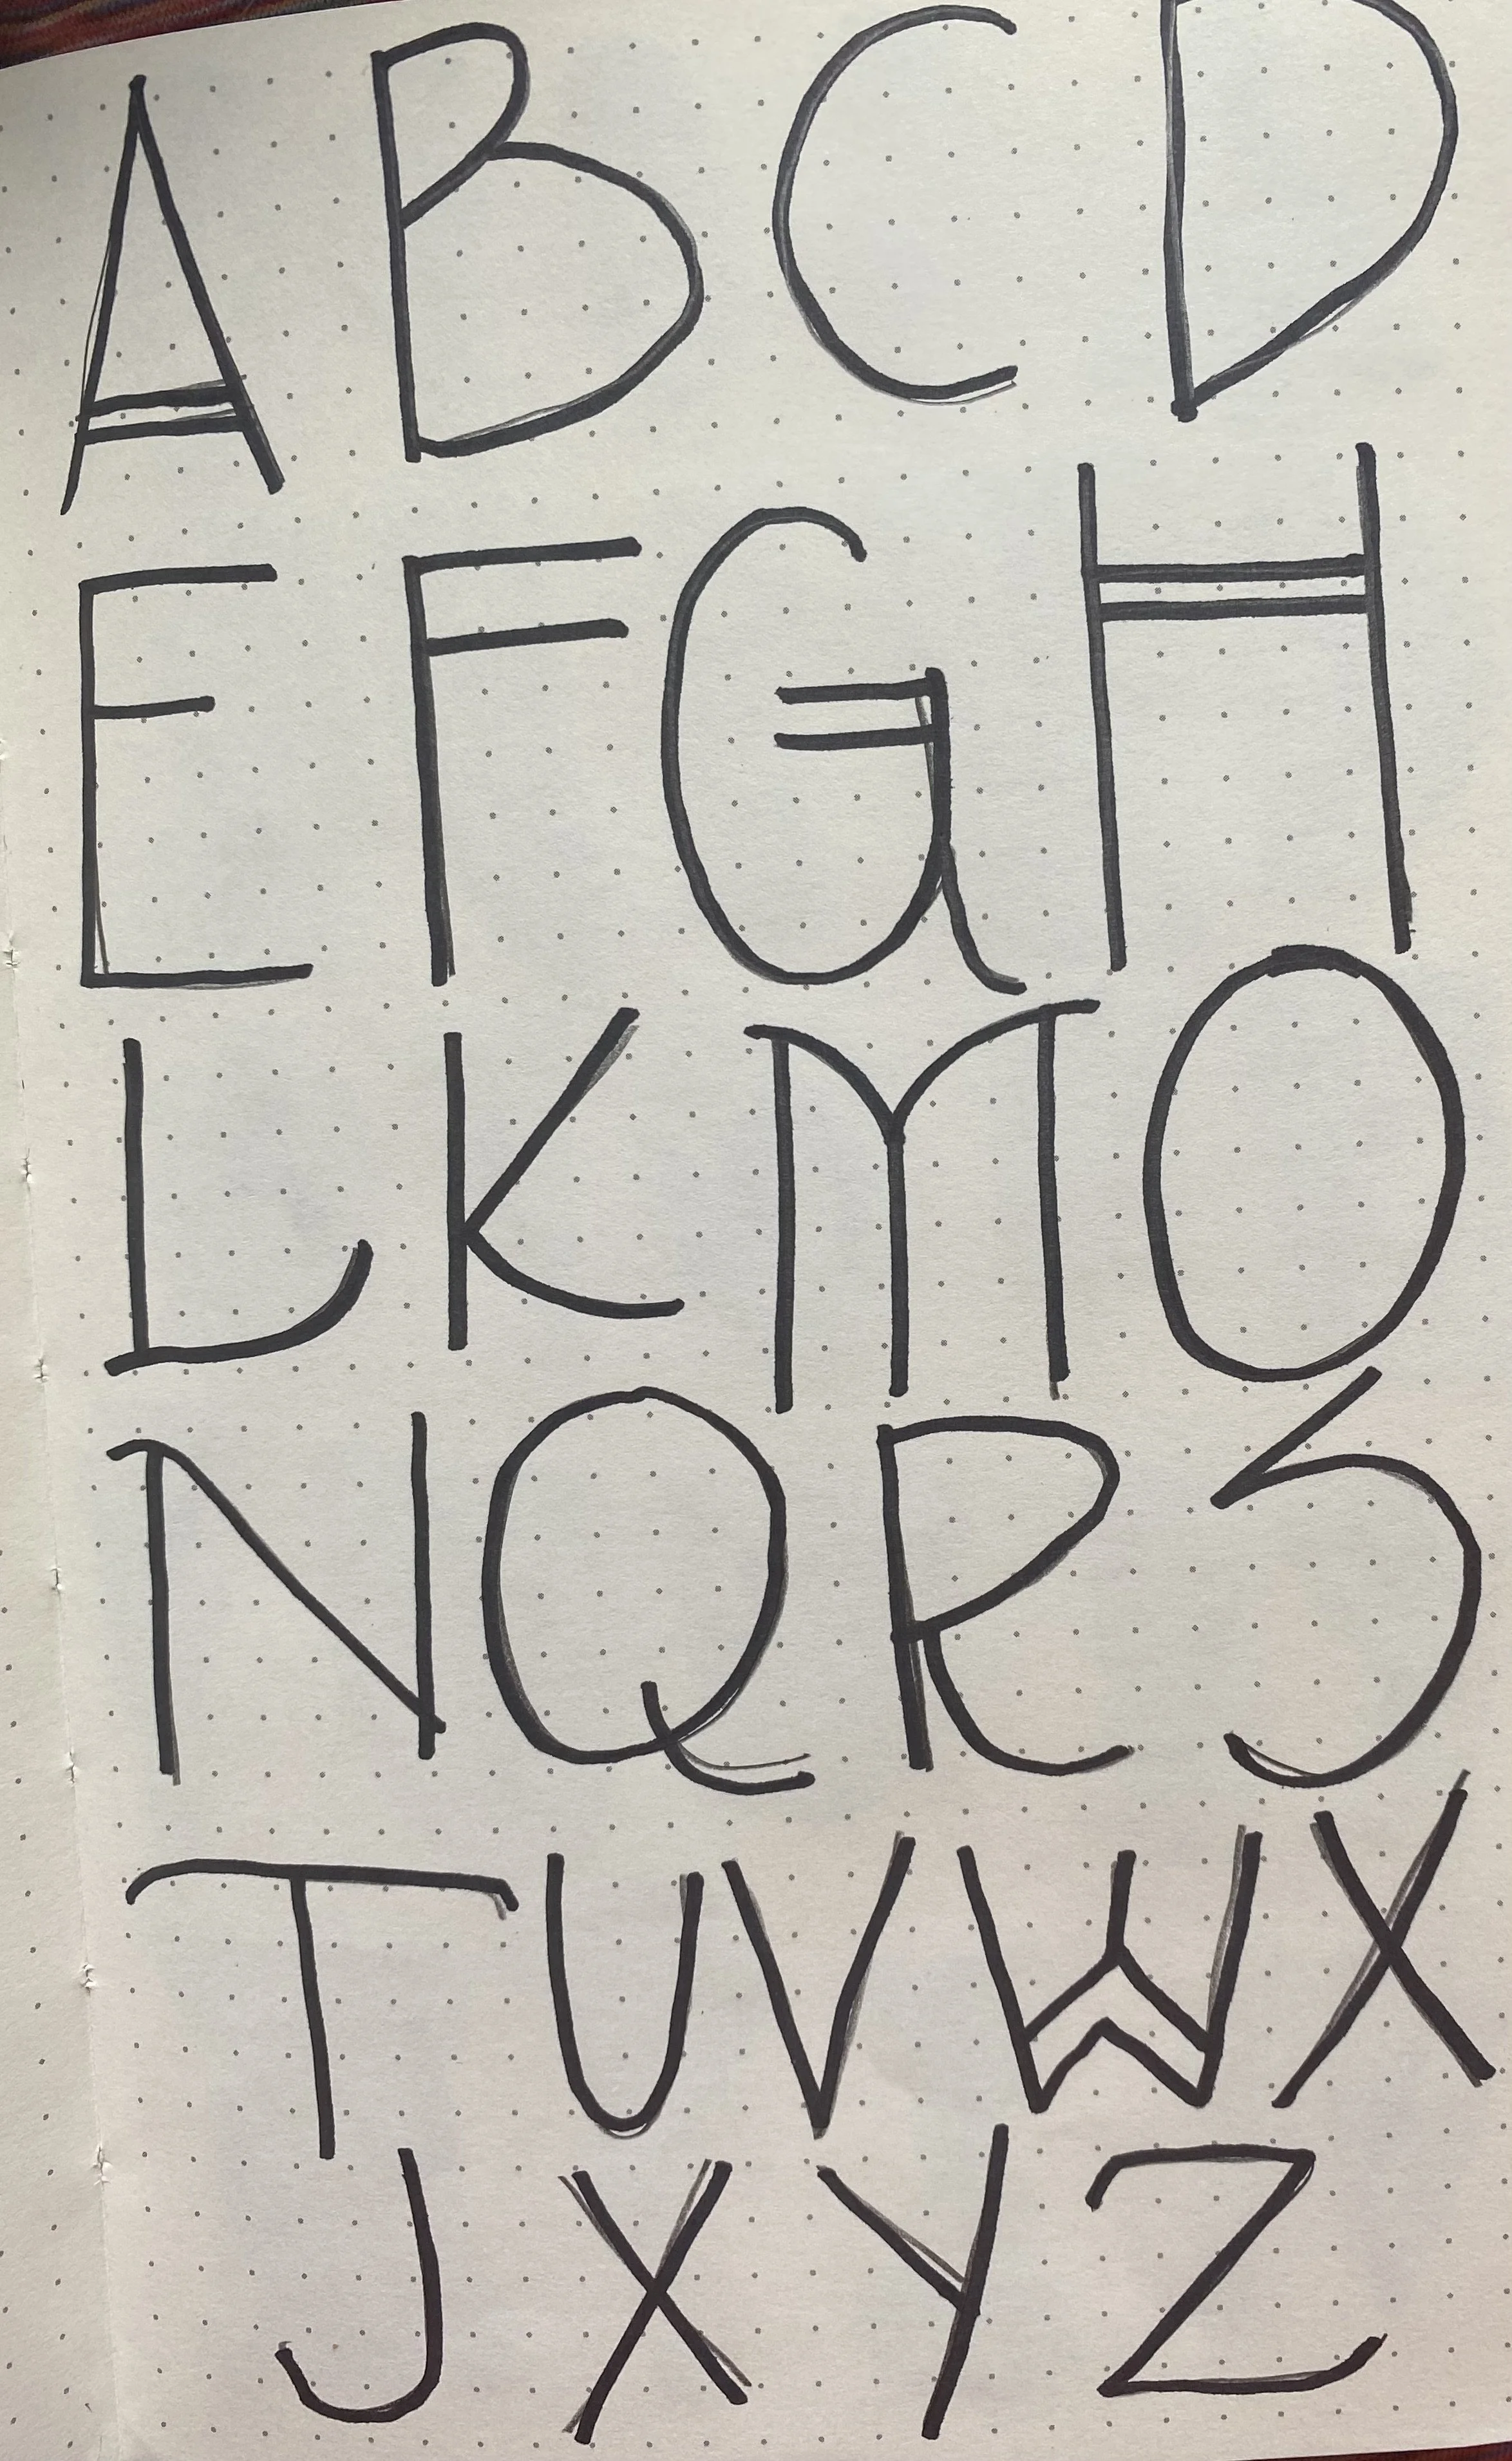 A B C D
E F G H
L K M O
N Q R S
T U V W X
J X Y Z